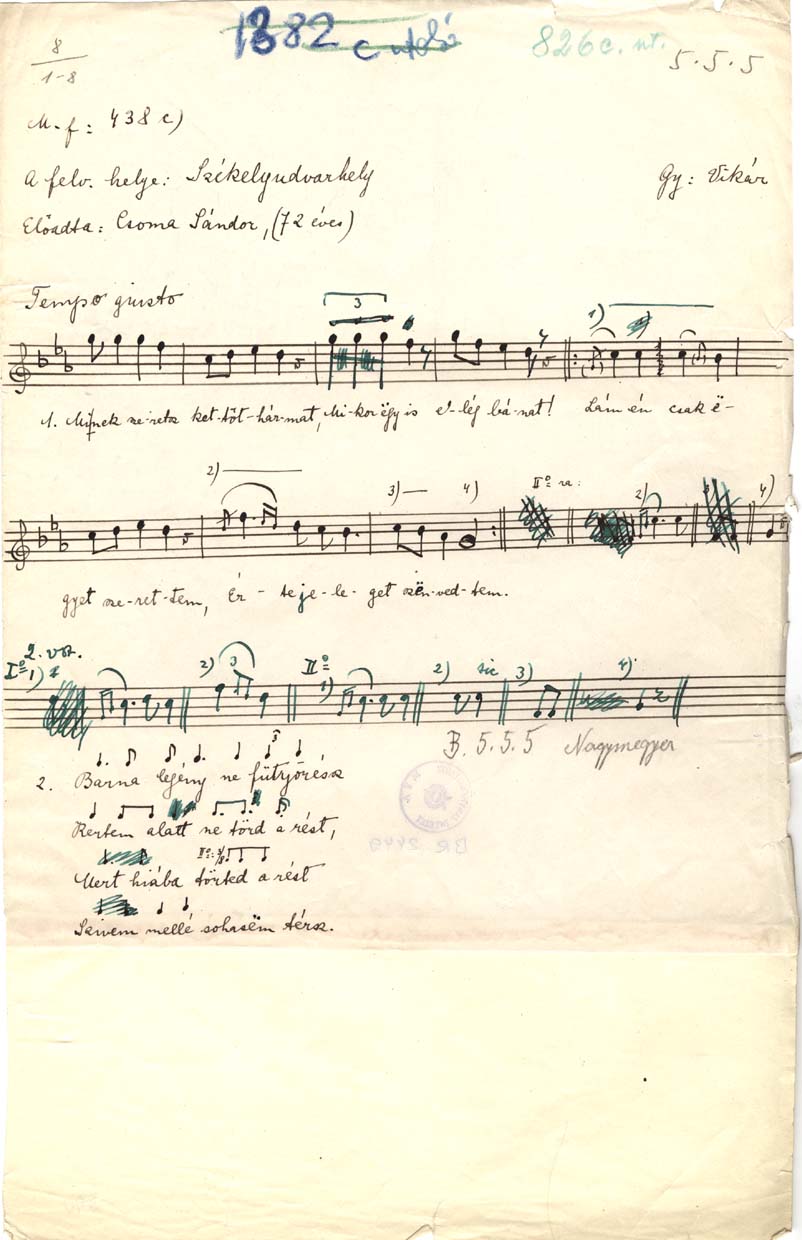 8
1-8
1382 c utolsó
826 c. nt.
5.5.5
M.f: 438 c)
A felv. helye: Székelyudvarhely
Gy: Vikár
Előadta: Csoma Sándor, (72 éves)
Tempo giusto
3
1)
1. Minek sze-retsz ket-tőt-hár-mat, Mi-kor ëgy is e-lég bá-nat! Lám én csak ë-
2) 3) 4) IIº ra: 2) 4)
gyet sze-ret-tem, Ér-te je-le-get szën-ved-tem.
2. vsz.
Iº 1) 2) 3 IIº 1) 2) sic 3) 4)
B. 5.5.5 Nagymegyer
2. Barna legény ne fütyöréssz
Kertem alatt ne törd a rést,
IIº:
Mert hiába törted a rést
Szivem mellé sohasëm térsz.